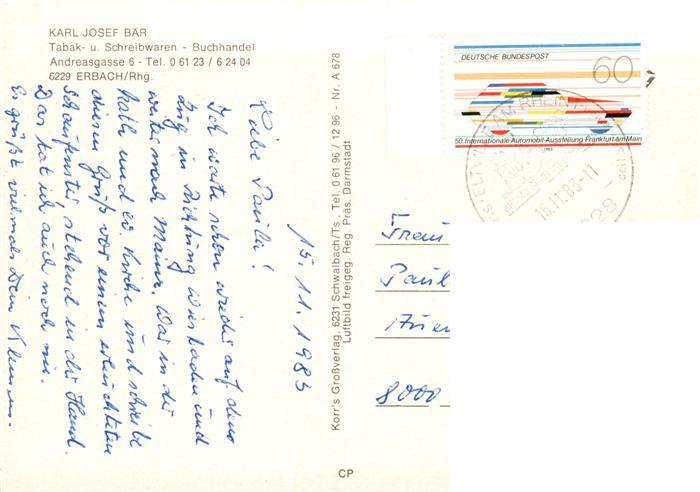 KARL JOSEF BÄR
Tabak- u. Schreibwaren - Buchhandel
Andreasgasse 6 - Tel. 0 61 23 / 6 24 04
6229 ERBACH/Rhg.
15.11.1983
Liebe Paula!
Ich warte schon wieder auf dem
Zug in Richtung Wiesbaden und
weiter nach Mainz. War in der
kath. und ev. Kirche und schreibe
diesen Gruß vor einem erleuchteten
Schaufenster, stehend in der Hand.
Das hat ich auch noch nie.
Es grüßt vielmals Dein Klemens.
Korr's Großverlag, 6231 Schwalbach/Ts. - Tel. 0 61 96 / 12 96 - Nr. A 678
Luftbild freigeg. Reg. Präs. Darmstadt
CP
DEUTSCHE BUNDESPOST
60
50. Internationale Automobil-Ausstellung Frankfurt am Main
1983
ELTVILLE AM RHEIN
16.11.83-11
6228
Frau
Paul
Auen
8000